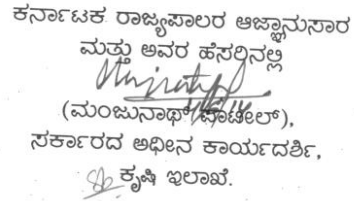 ಕರ್ನಾಟಕ ರಾಜ್ಯಪಾಲರ ಆಜ್ಞಾನುಸಾರ
ಮತ್ತು ಅವರ ಹೆಸರಿನಲ್ಲಿ
(ಮಂಜುನಾಥ್ ಪಾಟೀಲ್),
ಸರ್ಕಾರದ ಅಧೀನ ಕಾರ್ಯದರ್ಶಿ,
ಕೃಷಿ ಇಲಾಖೆ.